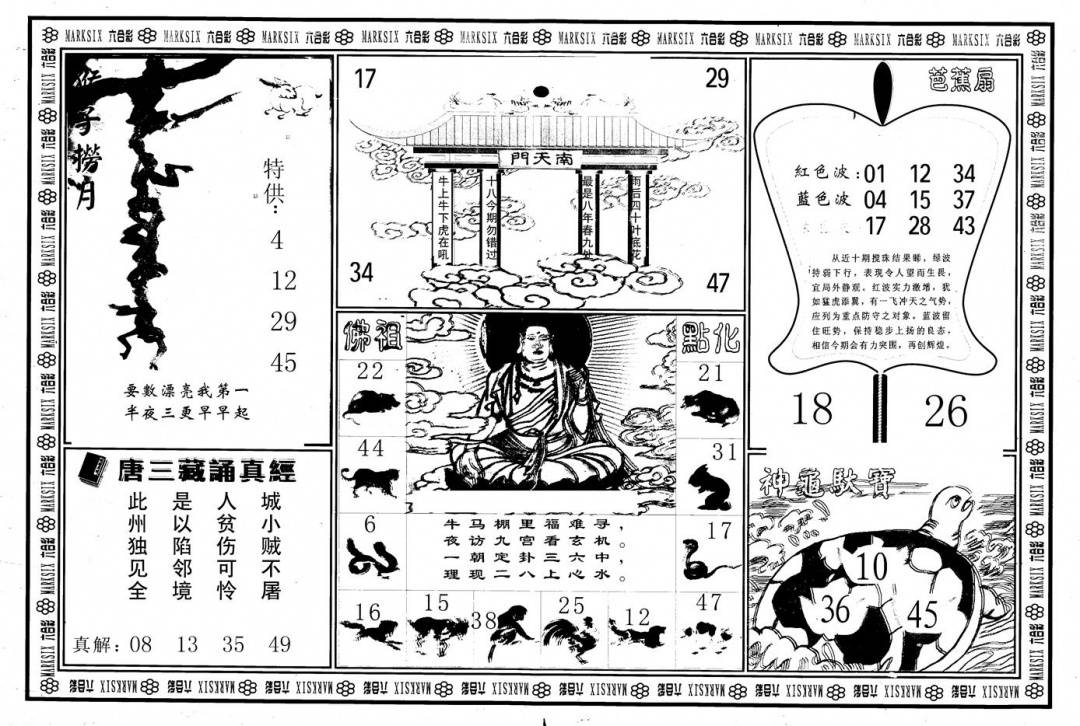 MARKSIX 六合彩 MARKSIX 六合彩 MARKSIX 六合彩 MARKSIX 六合彩 MARKSIX 六合彩 MARKSIX 六合彩 MARKSIX 六合彩 MARKSIX 六合彩 MARKSIX 六合彩 MARKSIX 六合彩
猴子撈月
特供：
4
12
29
45
要數漂亮我第一
半夜三更早早起
唐三藏誦真經
城小贼不屠
人贫伤可怜
是以陷邻境
此州独见全
真解：08 13 35 49
17 29
南天門
雨后四十叶底花
最是八年春九处
十八今期勿错过
牛上牛下虎在吼
34 47
佛祖 點化
22 21
44 31
6 17
牛马棚里福难寻，
夜访九宫看玄机。
一朝定卦三六中，
理现二八上心水。
16 15 38 25 12 47
芭蕉扇
紅色波：01 12 34
藍色波 04 15 37
17 28 43
从近十期搅珠结果睇，绿波
特弱下行，表现令人望而生畏，
宜局外静观。红波实力激增，犹
如猛虎添翼，有一飞冲天之气势，
应列为重点防守之对象。蓝波留
住旺势，保持稳步上扬的良态，
相信今期会有力突围，再创辉煌。
18 26
神龜馱寶
10
36 45